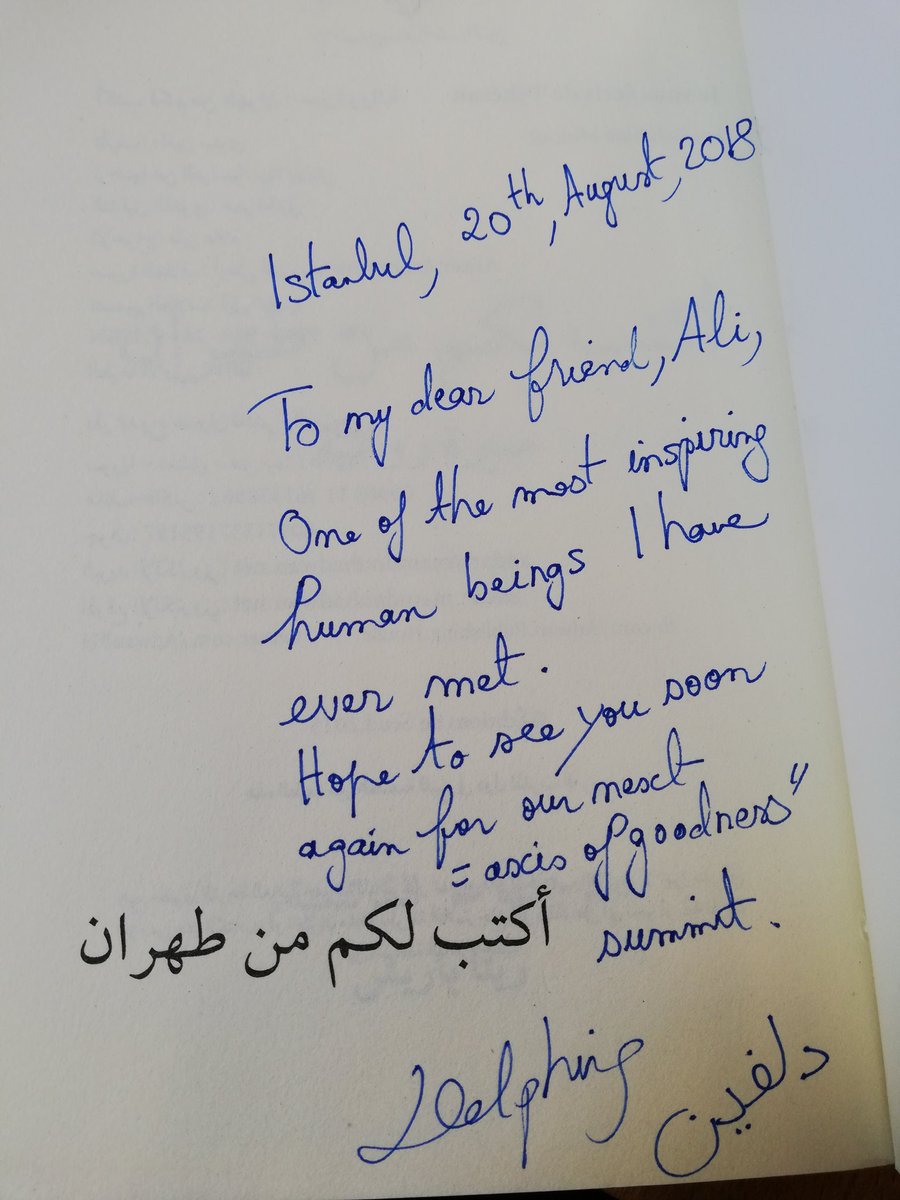 Istanbul, 20th, August, 2018
To my dear friend, Ali,
One of the most inspiring
human beings I have
ever met.
Hope to see you soon
again for our next
"axis of goodness"
summit.
أكتب لكم من طهران
Delphine
دلفين